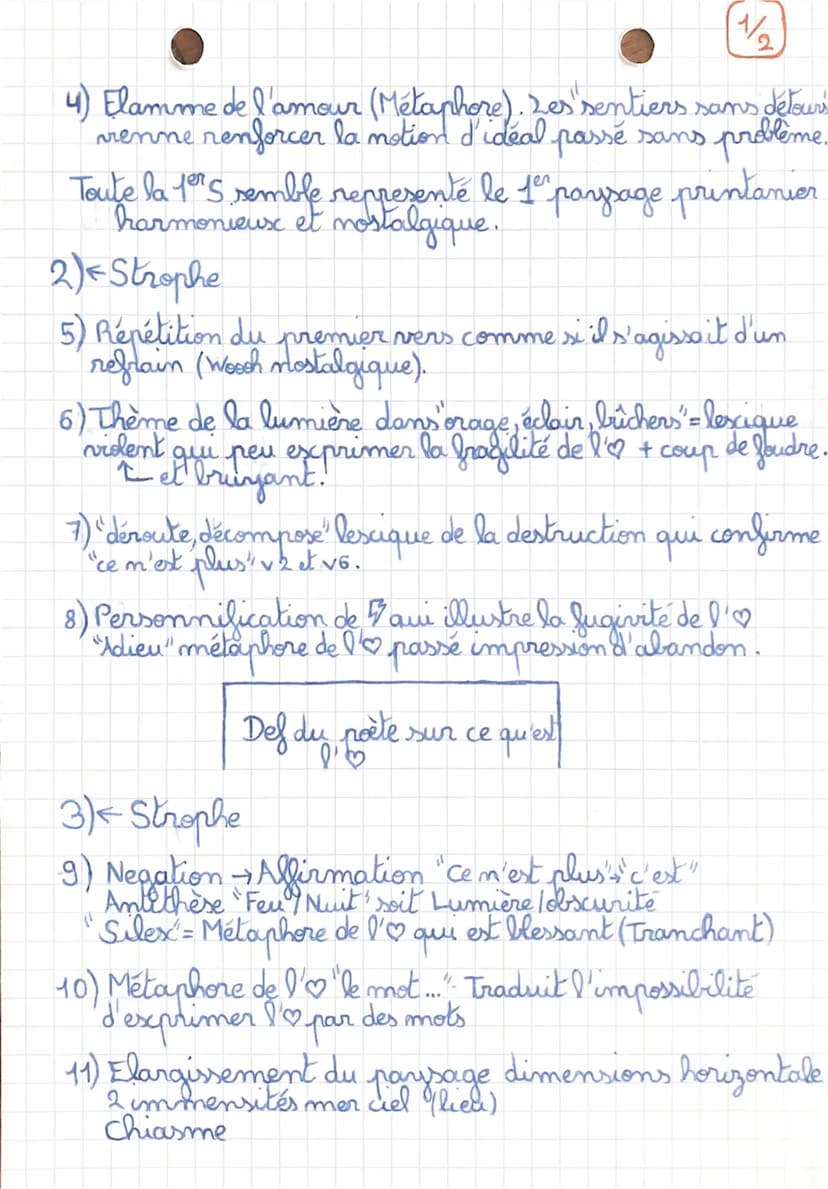 1/2
4) Flamme de l'amour (Métaphore). Les "sentiers sans détours
vienne renforcer la notion d'idéal passé sans problème.
Toute la 1er S semble representé le 1er paysage printanier
harmonieux et nostalgique.
2) ← Strophe
5) Répétition du premier vers comme si il s'agissait d'un
refrain (nostalgique).
6) Thème de la lumière dans "orage, éclair, bûchers" = lexique
violent qui peu exprimer la fragilité de l'♡ + coup de foudre.
↑ et bruyant.
7) "déroute, décompose" lexique de la destruction qui confirme
"ce n'est plus" v2 et v6.
8) Personnification de ⚡ qui illustre la fugivité de l'♡
"Adieu" métaphore de l'♡ passé impression d'abandon.
Def du poète sur ce qu'est
l'♡
3) ← Strophe
9) Negation → Affirmation "ce n'est plus" → "c'est"
Antithèse "Feu / Nuit" soit Lumière / obscurité
"Silex" = Métaphore de l'♡ qui est blessant (Tranchant)
10) Métaphore de l'♡ "le mot..." Traduit l'impossibilité
d'exprimer l'♡ par des mots
11) Elargissement du paysage dimensions horizontale
2 immensités mer ciel (lieu)
Chiasme